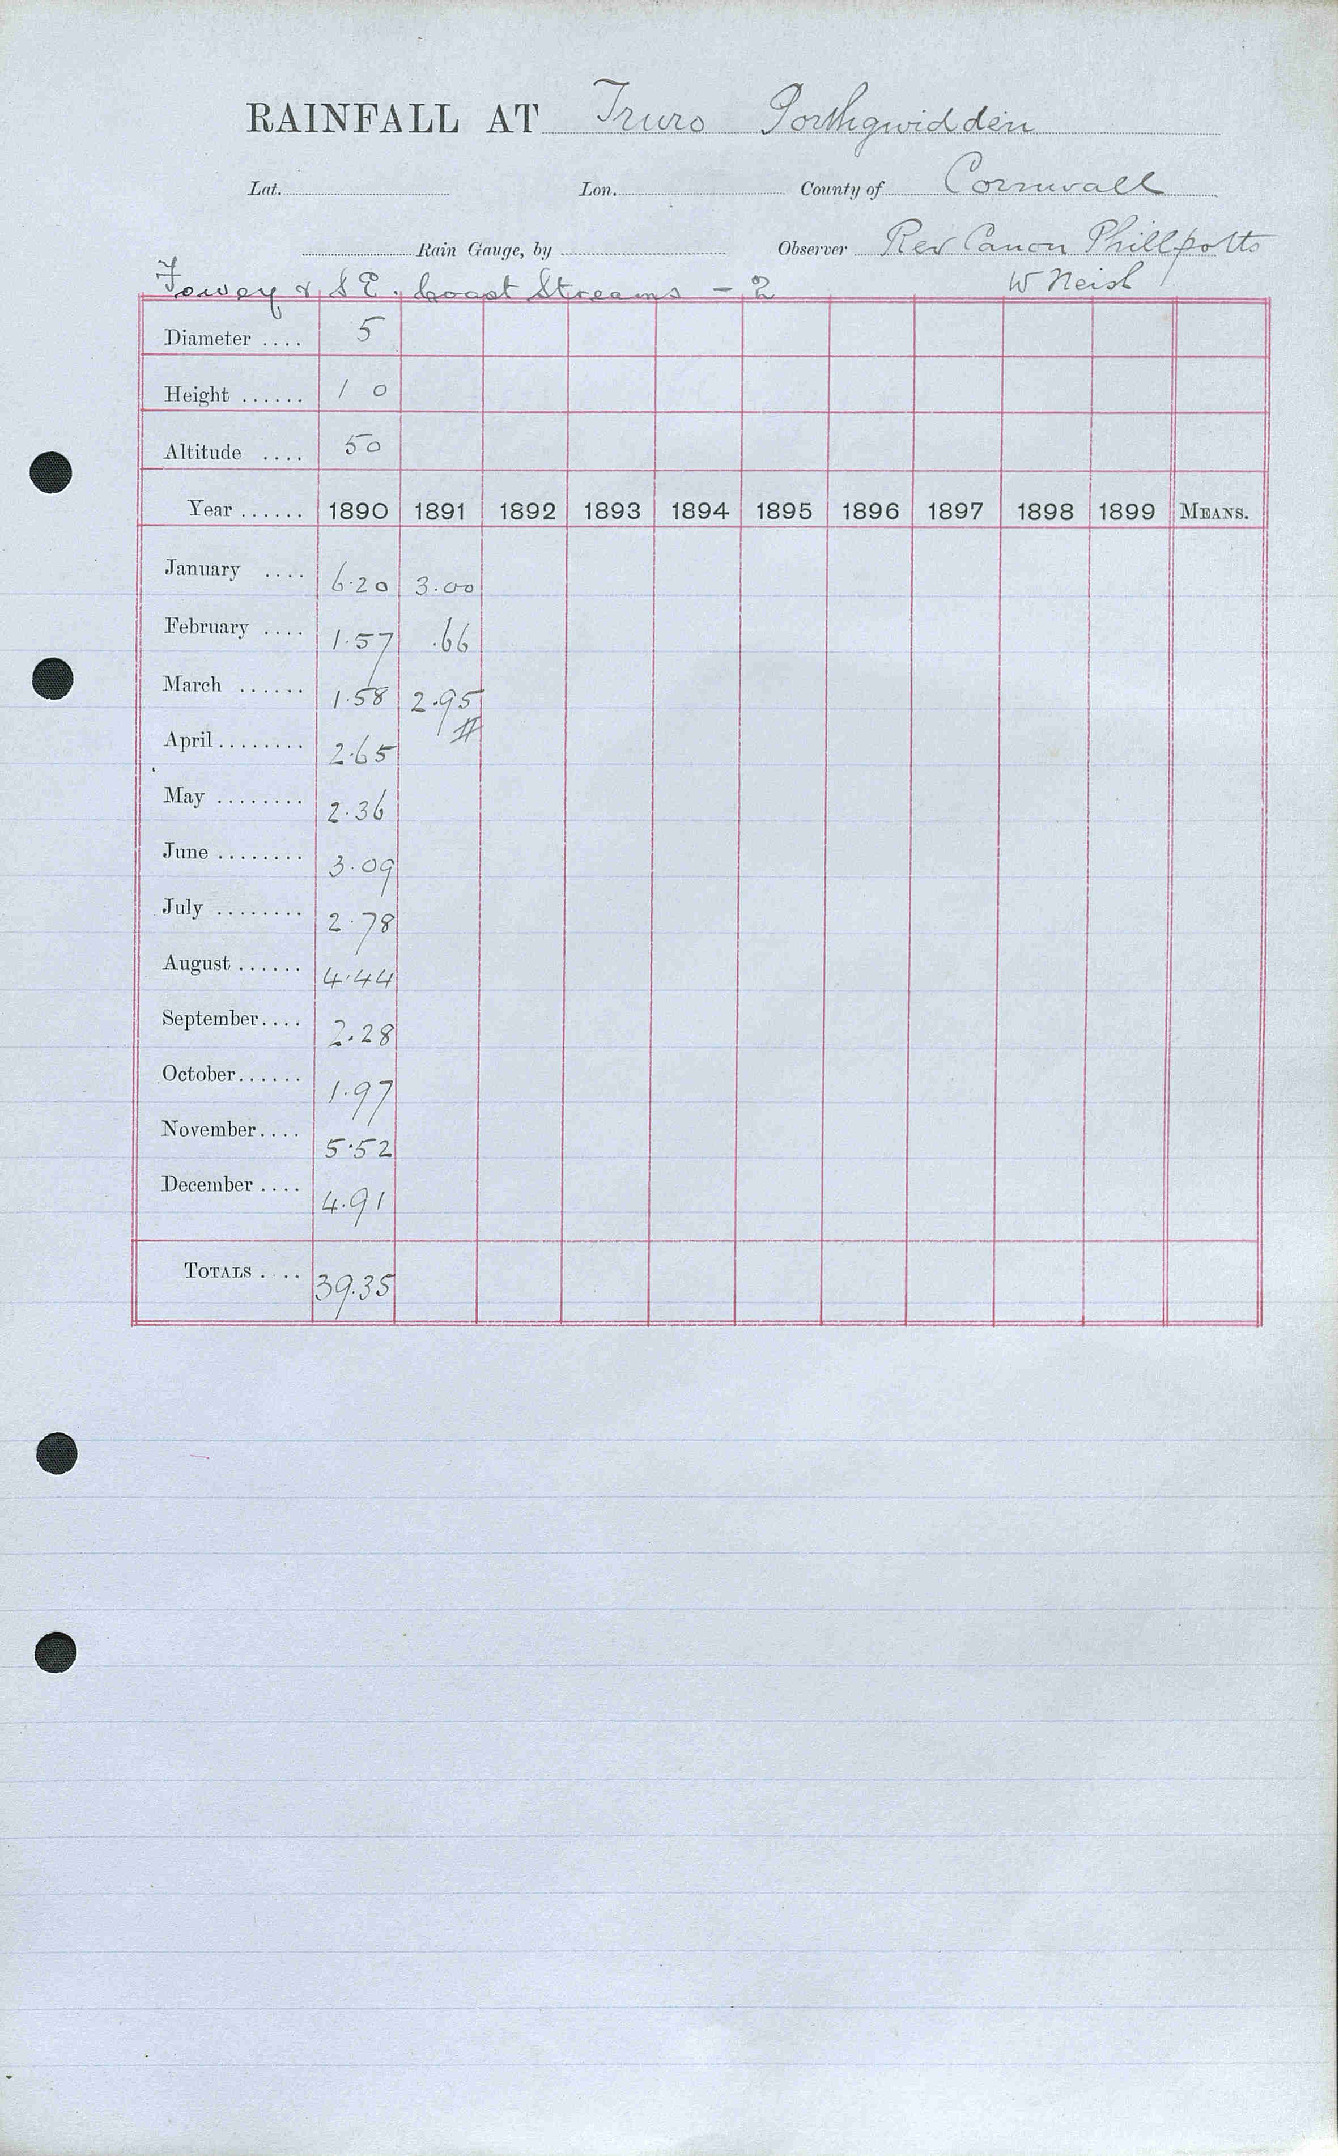 RAINFALL AT Truro Porthgwidden
Lat. Lon. County of Cornwall
Rain Gauge, by Observer Rev Canon Phillpotts
W Neish
Fowey & S E. Coast Streams - 2
Diameter .... 5
Height ...... 1 0
Altitude .... 50
Year ...... 1890 1891 1892 1893 1894 1895 1896 1897 1898 1899 MEANS.
January .... 6.20 3.00
February .... 1.57 .66
March ...... 1.58 2.95
April ........ 2.65
May ........ 2.36
June ........ 3.09
July ........ 2.78
August ...... 4.44
September.... 2.28
October...... 1.97
November.... 5.52
December .... 4.91
TOTALS .... 39.35